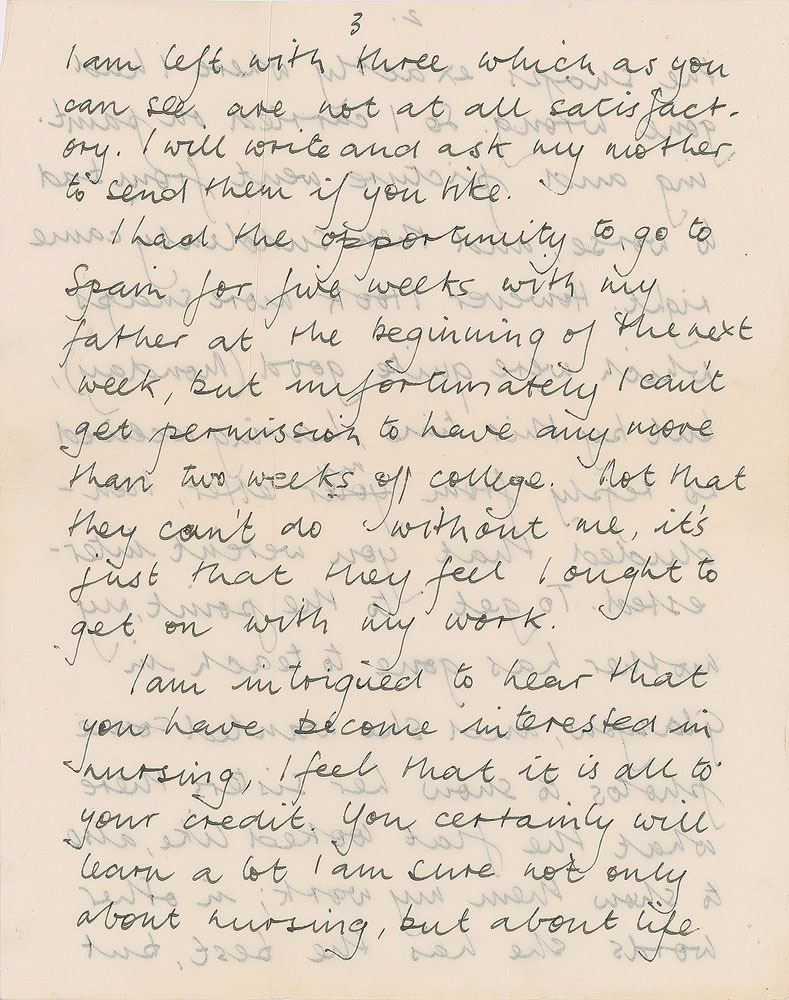 3
I am left with three which as you
can see are not at all satisfact-
ory. I will write and ask my mother
to send them if you like.
I had the opportunity to go to
Spain for five weeks with my
father at the beginning of the next
week, but unfortunately I can't
get permission to have any more
than two weeks off college. Not that
they can't do without me, it's
just that they feel I ought to
get on with my work.
I am intrigued to hear that
you have become interested in
nursing, I feel that it is all to
your credit. You certainly will
learn a lot I am sure not only
about nursing, but about life